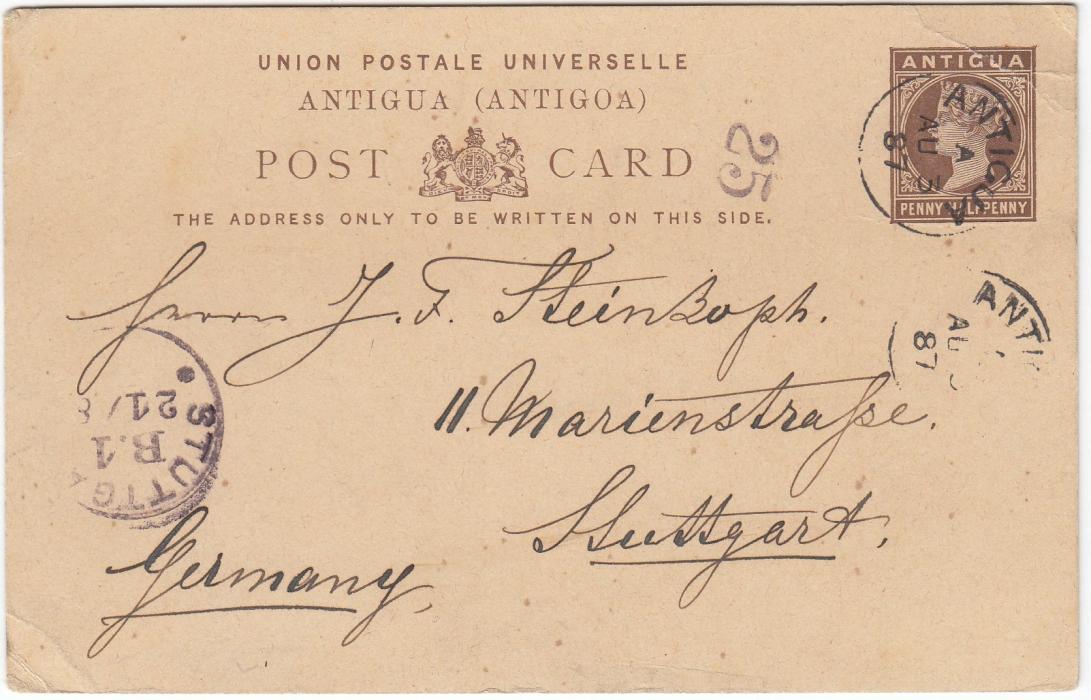 UNION POSTALE UNIVERSELLE
ANTIGUA (ANTIGOA)
POST CARD
THE ADDRESS ONLY TO BE WRITTEN ON THIS SIDE.
ANTIGUA
PENNY HALFPENNY
ANTIGUA
A
AU 3
87
25
Herrn J. F. Steinkoph.
11. Marienstraße.
Stuttgart.
Germany.
ANTI
AU
87
STUTTG
21/8
B.1